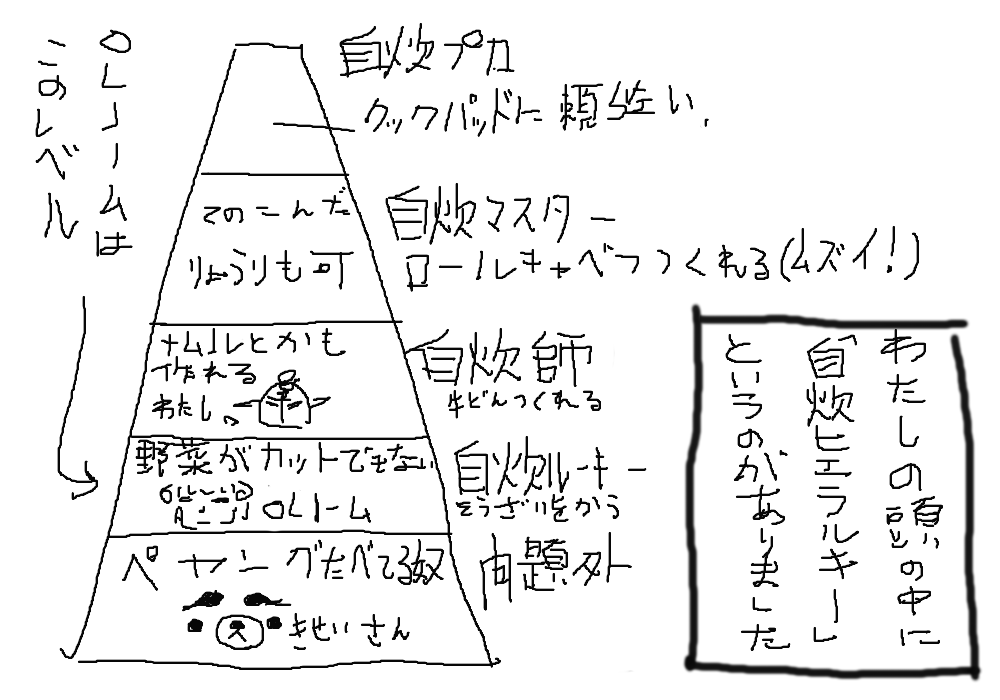 わたしの頭の中に
「自炊ヒエラルキー」
というのがありました
○レームは
このレベル
自炊プロ
クックパッドに頼らない
自炊マスター
ロールキャベツつくれる(ムズイ!)
てのこんだ
りょうりも可
自炊師
牛どんつくれる
ナムルとかも
作れる
わたし。
自炊ルーキー
そうざいをかう
野菜がカットできない
○レーム
問題外
ペヤングたべてる奴
きせいさん